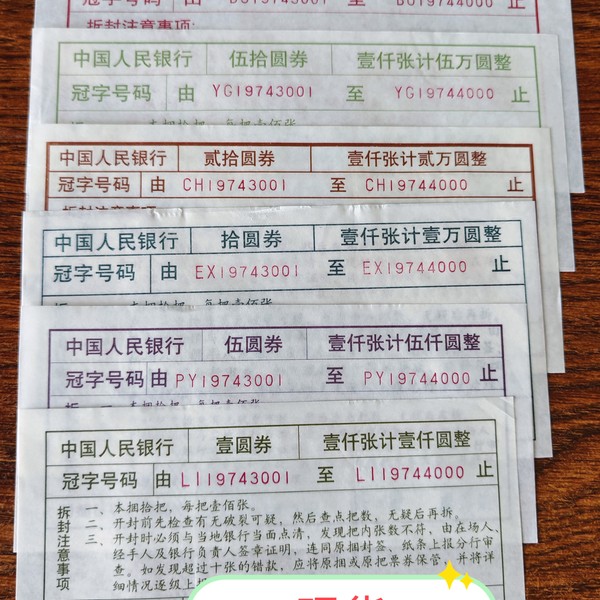 冠字号码 由 BO19743001 至 BO19744000 止
拆封注意事项:
中国人民银行 伍拾圆券 壹仟张计伍万圆整
冠字号码 由 YG19743001 至 YG19744000 止
一、本捆拾把，每把壹佰张。
中国人民银行 贰拾圆券 壹仟张计贰万圆整
冠字号码 由 CH19743001 至 CH19744000 止
拆封注意事项
中国人民银行 拾圆券 壹仟张计壹万圆整
冠字号码 由 EX19743001 至 EX19744000 止
拆 一、本捆拾把，每把壹佰张。
中国人民银行 伍圆券 壹仟张计伍仟圆整
冠字号码 由 PY19743001 至 PY19744000 止
拆 一、本捆拾把，每把壹佰张。
中国人民银行 壹圆券 壹仟张计壹仟圆整
冠字号码 由 LI19743001 至 LI19744000 止
拆封注意事项
一、本捆拾把，每把壹佰张。
二、开封前先检查有无破裂可疑，然后查点把数，无疑后再拆。
三、开封时必须与当地银行当面点清，发现把内张数不符，由在场人、
经手人及银行负责人签章证明，连同原捆封签、纸条上报分行审
查。如发现超过十张的错款，应将原捆或原把票券保管，并将详
细情况逐级上报
现货